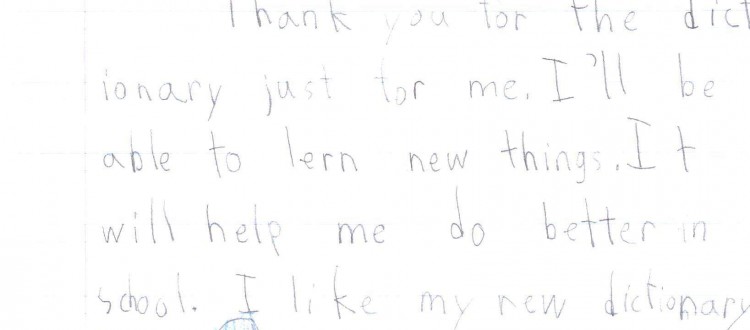 Thank you for the dict
ionary just for me. I'll be
able to lern new things. It
will help me do better in
school. I like my new dictionary